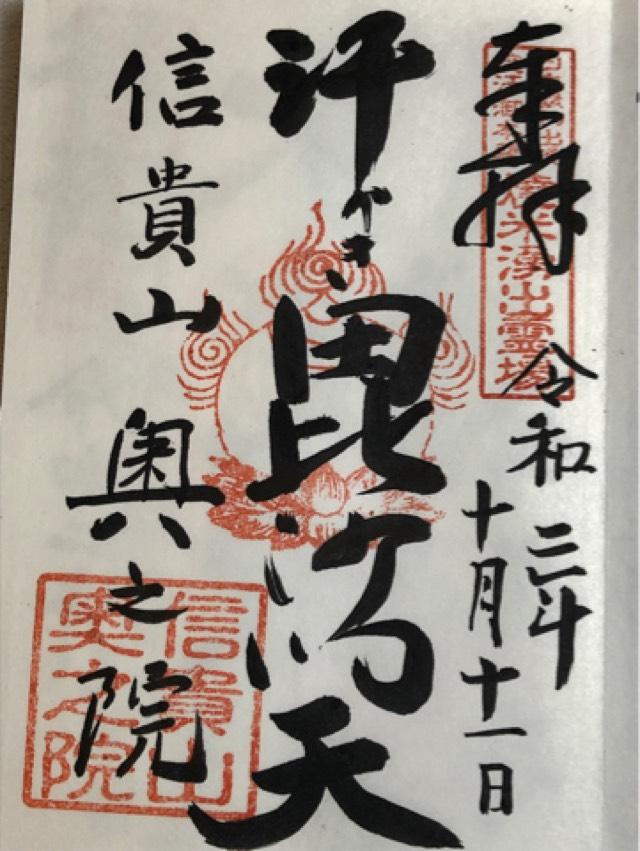 奉拝
令和二年
十月十一日
汗かき毘沙門天
信貴山奥之院
信貴山
奥之院